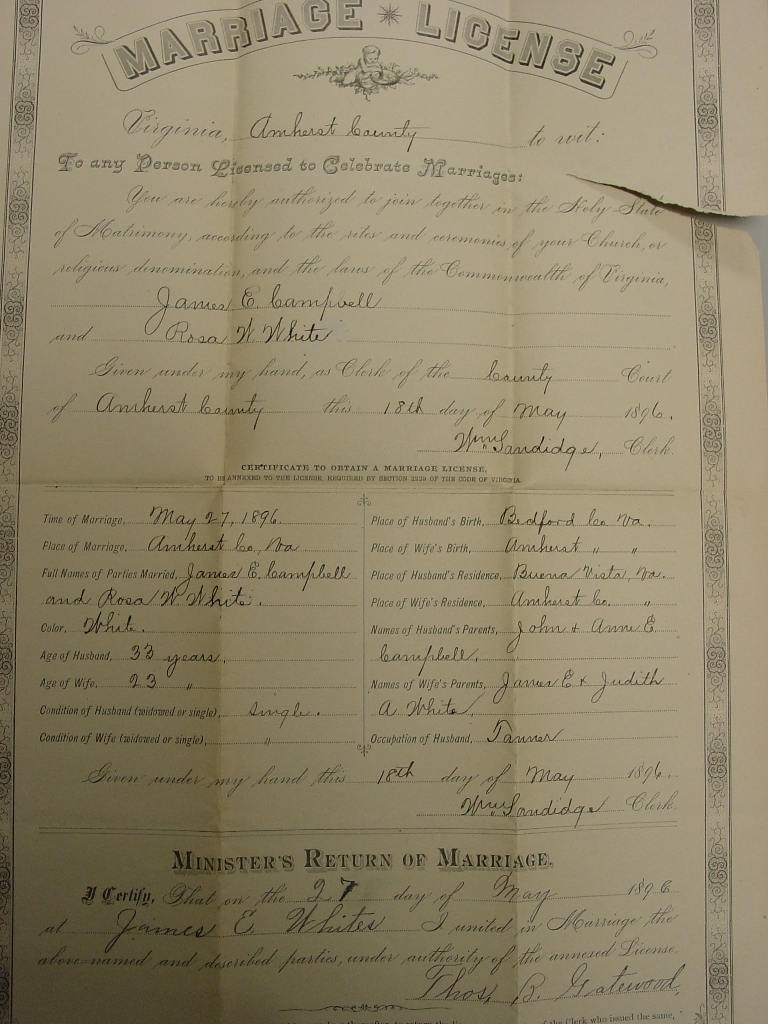 MARRIAGE LICENSE
Virginia, Amherst County to wit:
To any Person Licensed to Celebrate Marriages:
You are hereby authorized to join together in the Holy State
of Matrimony, according to the rites and ceremonies of your Church, or
religious denomination, and the laws of the Commonwealth of Virginia,
James E. Campbell
and Rosa W. White
Given under my hand, as Clerk of the County Court
of Amherst County this 18th day of May 1896.
Wm Sandidge, Clerk.
CERTIFICATE TO OBTAIN A MARRIAGE LICENSE,
TO BE ANNEXED TO THE LICENSE, REQUIRED BY SECTION 2229 OF THE CODE OF VIRGINIA.
Time of Marriage, May 27, 1896.
Place of Marriage, Amherst Co, Va
Full Names of Parties Married, James E. Campbell
and Rosa W White.
Color, White.
Age of Husband, 33 years.
Age of Wife, 23 "
Condition of Husband (widowed or single), Single.
Condition of Wife (widowed or single), "
Place of Husband's Birth, Bedford Co. Va.
Place of Wife's Birth, Amherst " "
Place of Husband's Residence, Buena Vista, Va.
Place of Wife's Residence, Amherst Co. "
Names of Husband's Parents, John & Anne E.
Campbell.
Names of Wife's Parents, James E & Judith
A White.
Occupation of Husband, Tanner
Given under my hand this 18th day of May 1896.
Wm Sandidge Clerk.
MINISTER'S RETURN OF MARRIAGE.
I Certify, That on the 27 day of May 1896
at James E. Whites I united in Marriage the
above-named and described parties, under authority of the annexed License.
Thos. B. Gatewood,
of the Clerk who issued the same,